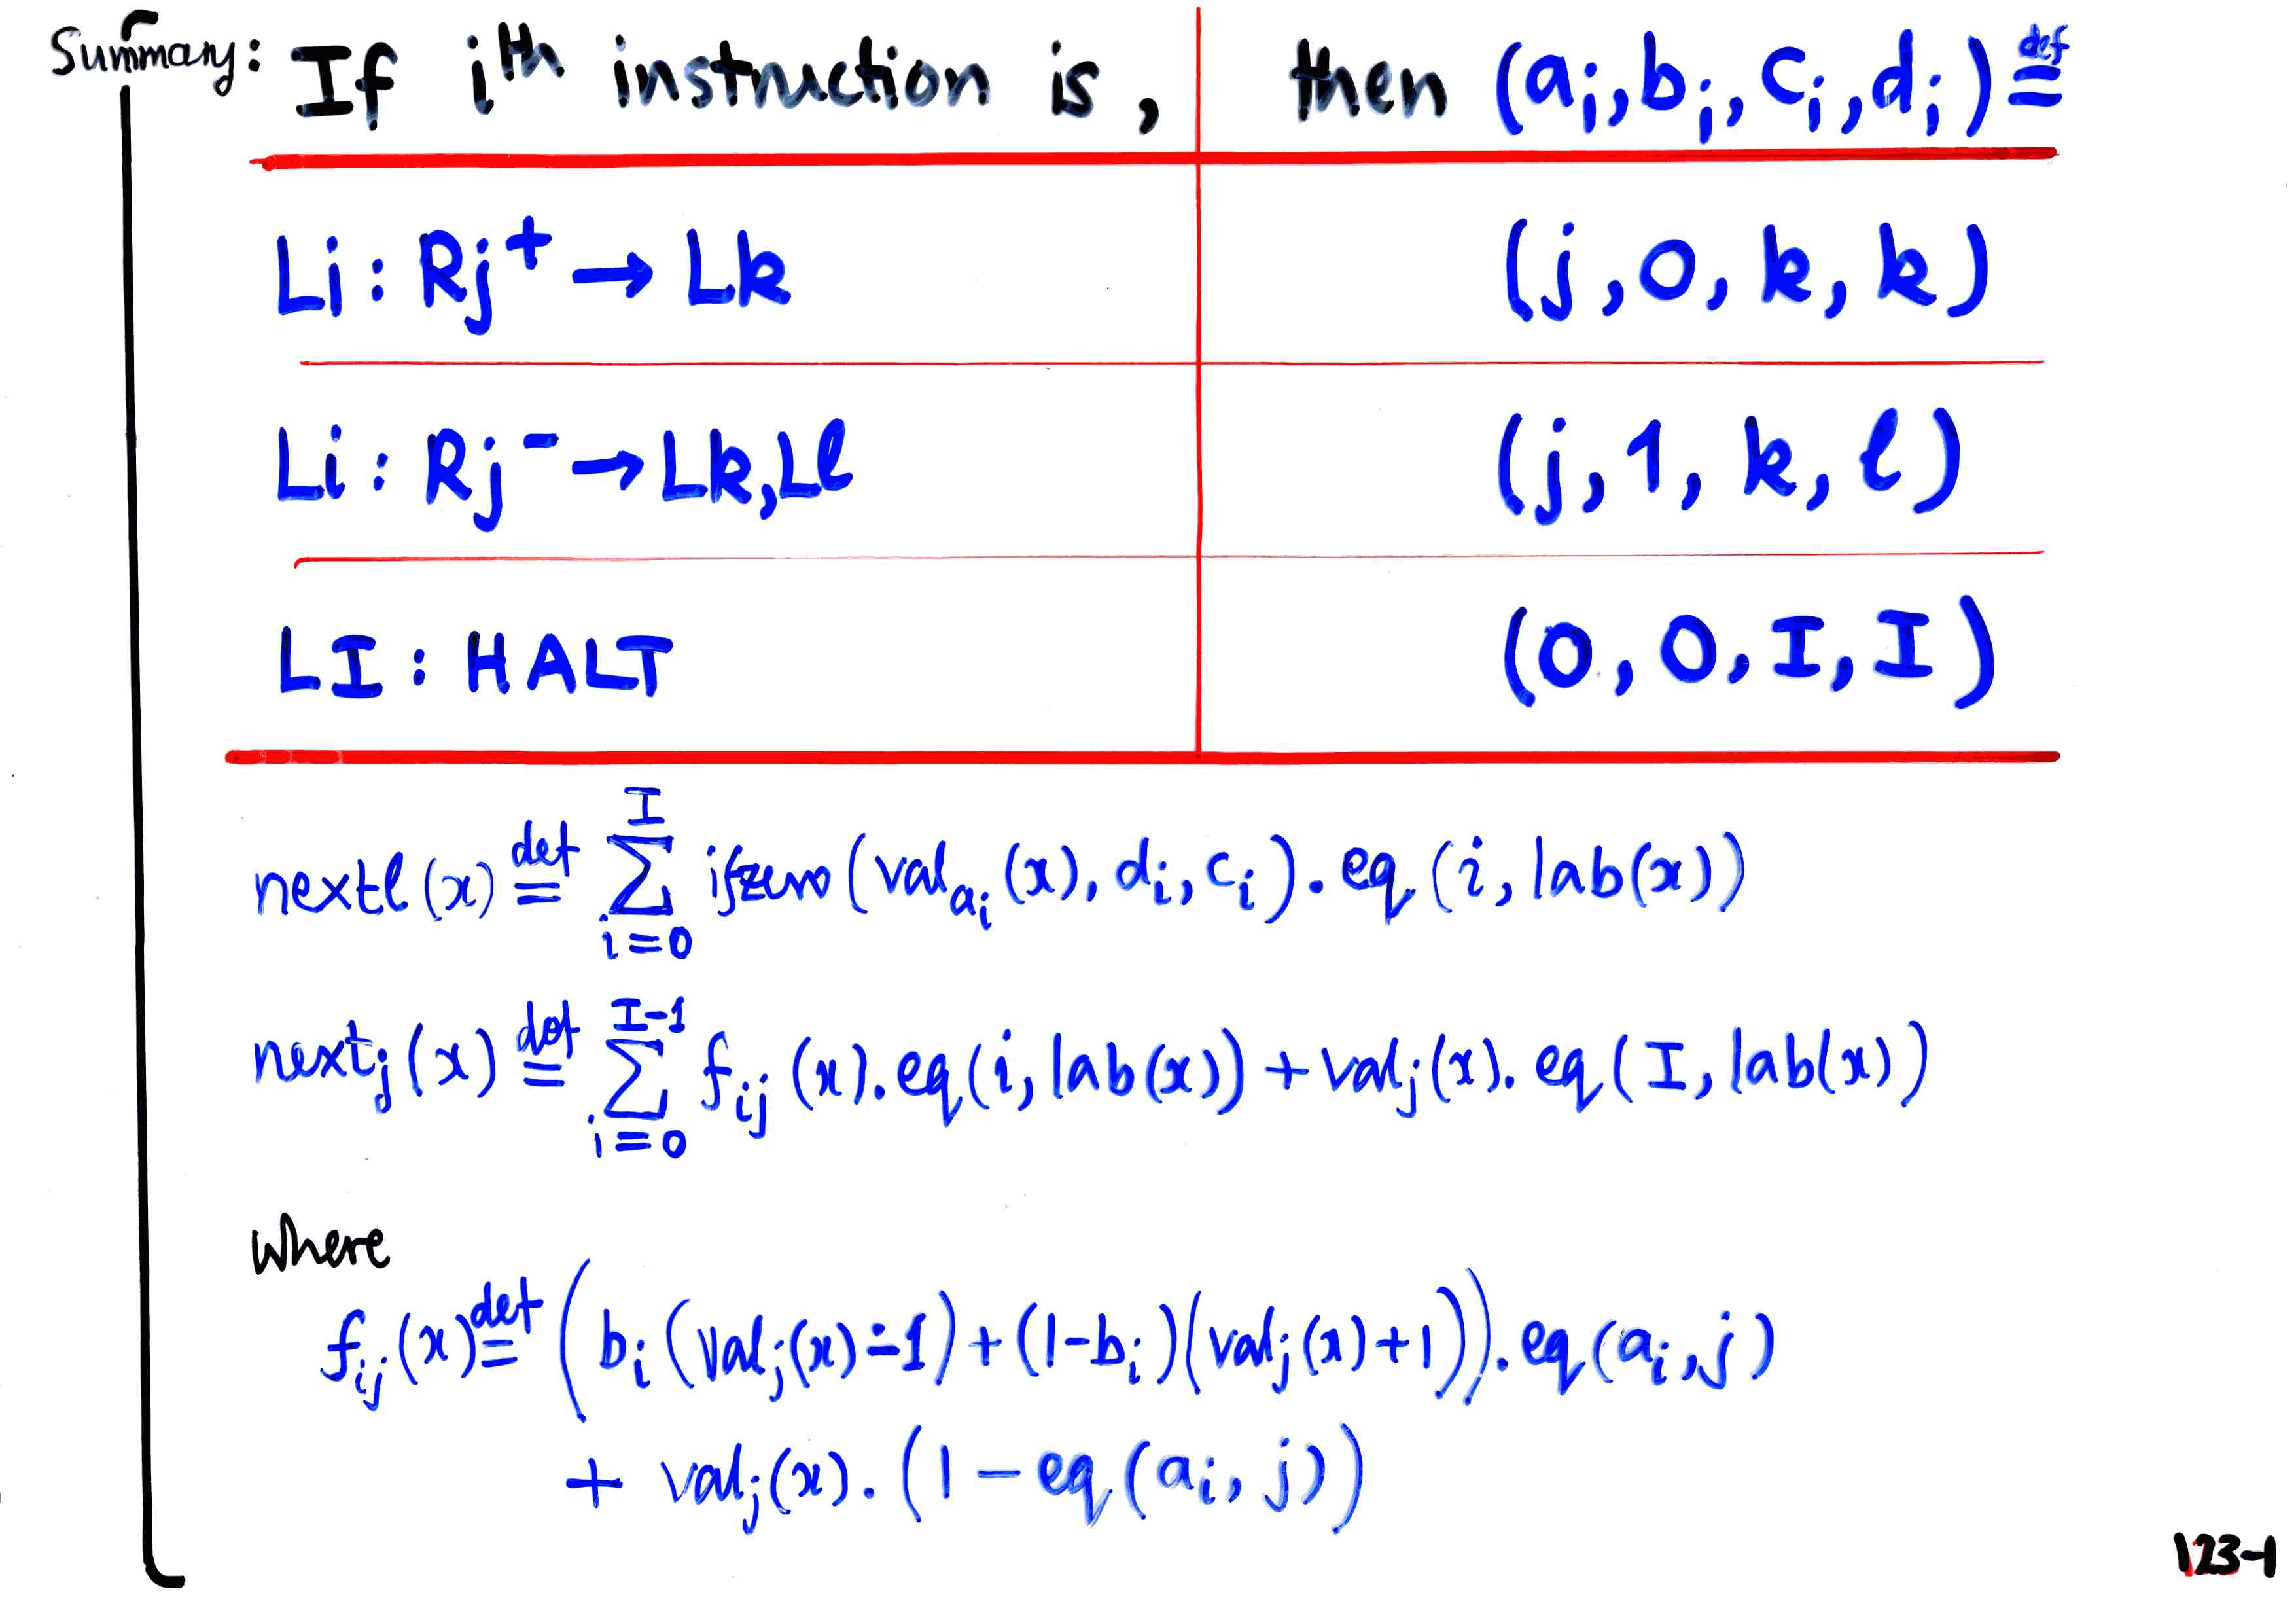 Summary: If iᵗʰ instruction is, then (aᵢ, bᵢ, cᵢ, dᵢ) ≝
Li : Rj⁺ → Lk (j, 0, k, k)
Li : Rj⁻ → Lk, Lℓ (j, 1, k, ℓ)
LI : HALT (0, 0, I, I)
nextℓ(x) ≝ ∑_{i=0}^{I} ifzero(val_{aᵢ}(x), dᵢ, cᵢ). eq(i, lab(x))
nextⱼ(x) ≝ ∑_{i=0}^{I-1} f_{ij}(x). eq(i, lab(x)) + valⱼ(x). eq(I, lab(x))
where
f_{ij}(x) ≝ (bᵢ(valⱼ(x) ∸ 1) + (1-bᵢ)(valⱼ(x)+1)). eq(aᵢ, j)
+ valⱼ(x). (1 - eq(aᵢ, j))
123-1